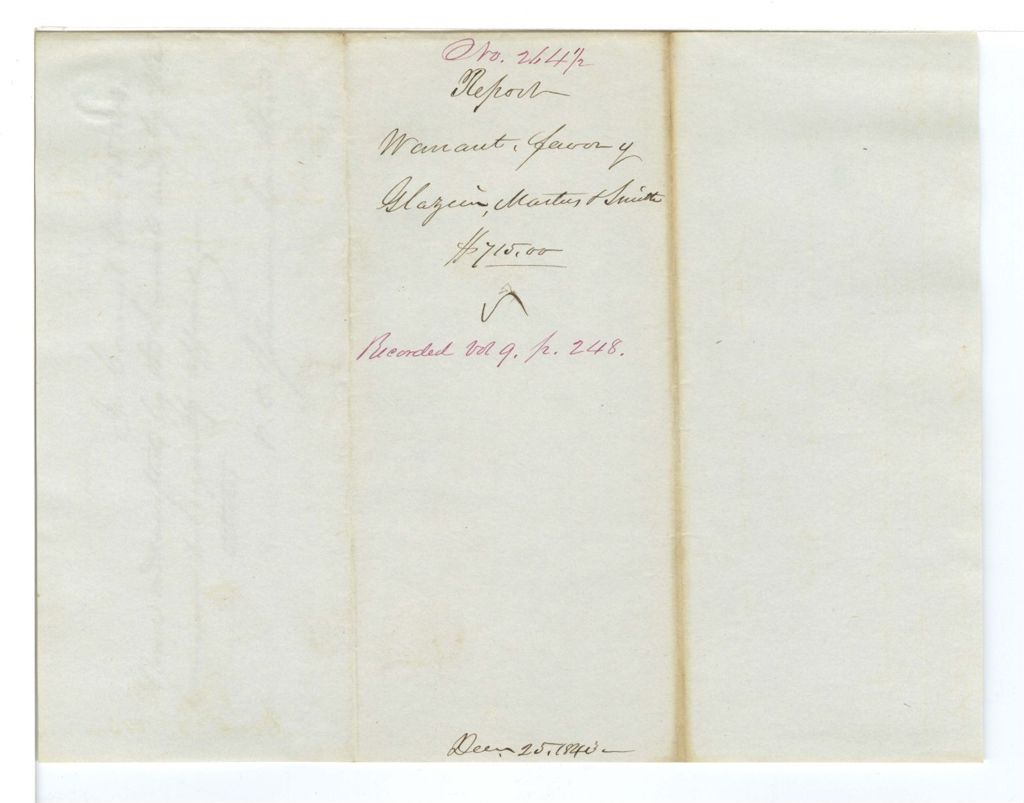 No. 264½
Report
Warrant, favor of
Glazier, Masters & Smith
$715.00
Recorded vol 9. p. 248.
Decr. 25. 184